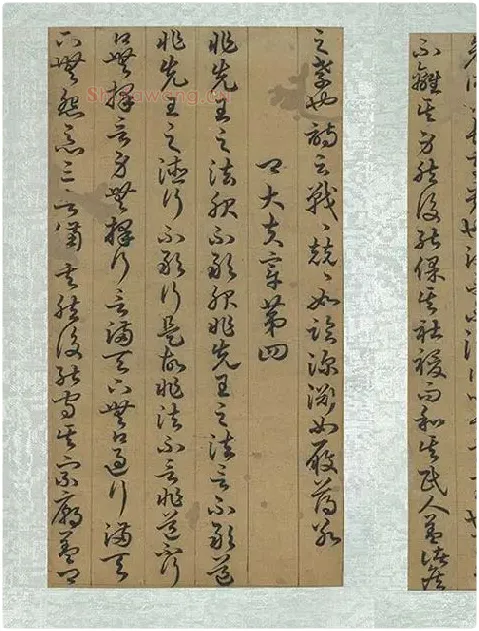 不離其身然後能保其社稷而和其民人蓋諸侯
之孝也詩云戰〻兢〻如臨深淵如履薄冰
卿大夫章第四
非先王之法服不敢服非先王之法言不敢道
非先王之德行不敢行是故非法不言非道不行
口無擇言身無擇行言滿天下無口過行滿天
下無怨惡三者備矣然後能守其宗廟蓋卿